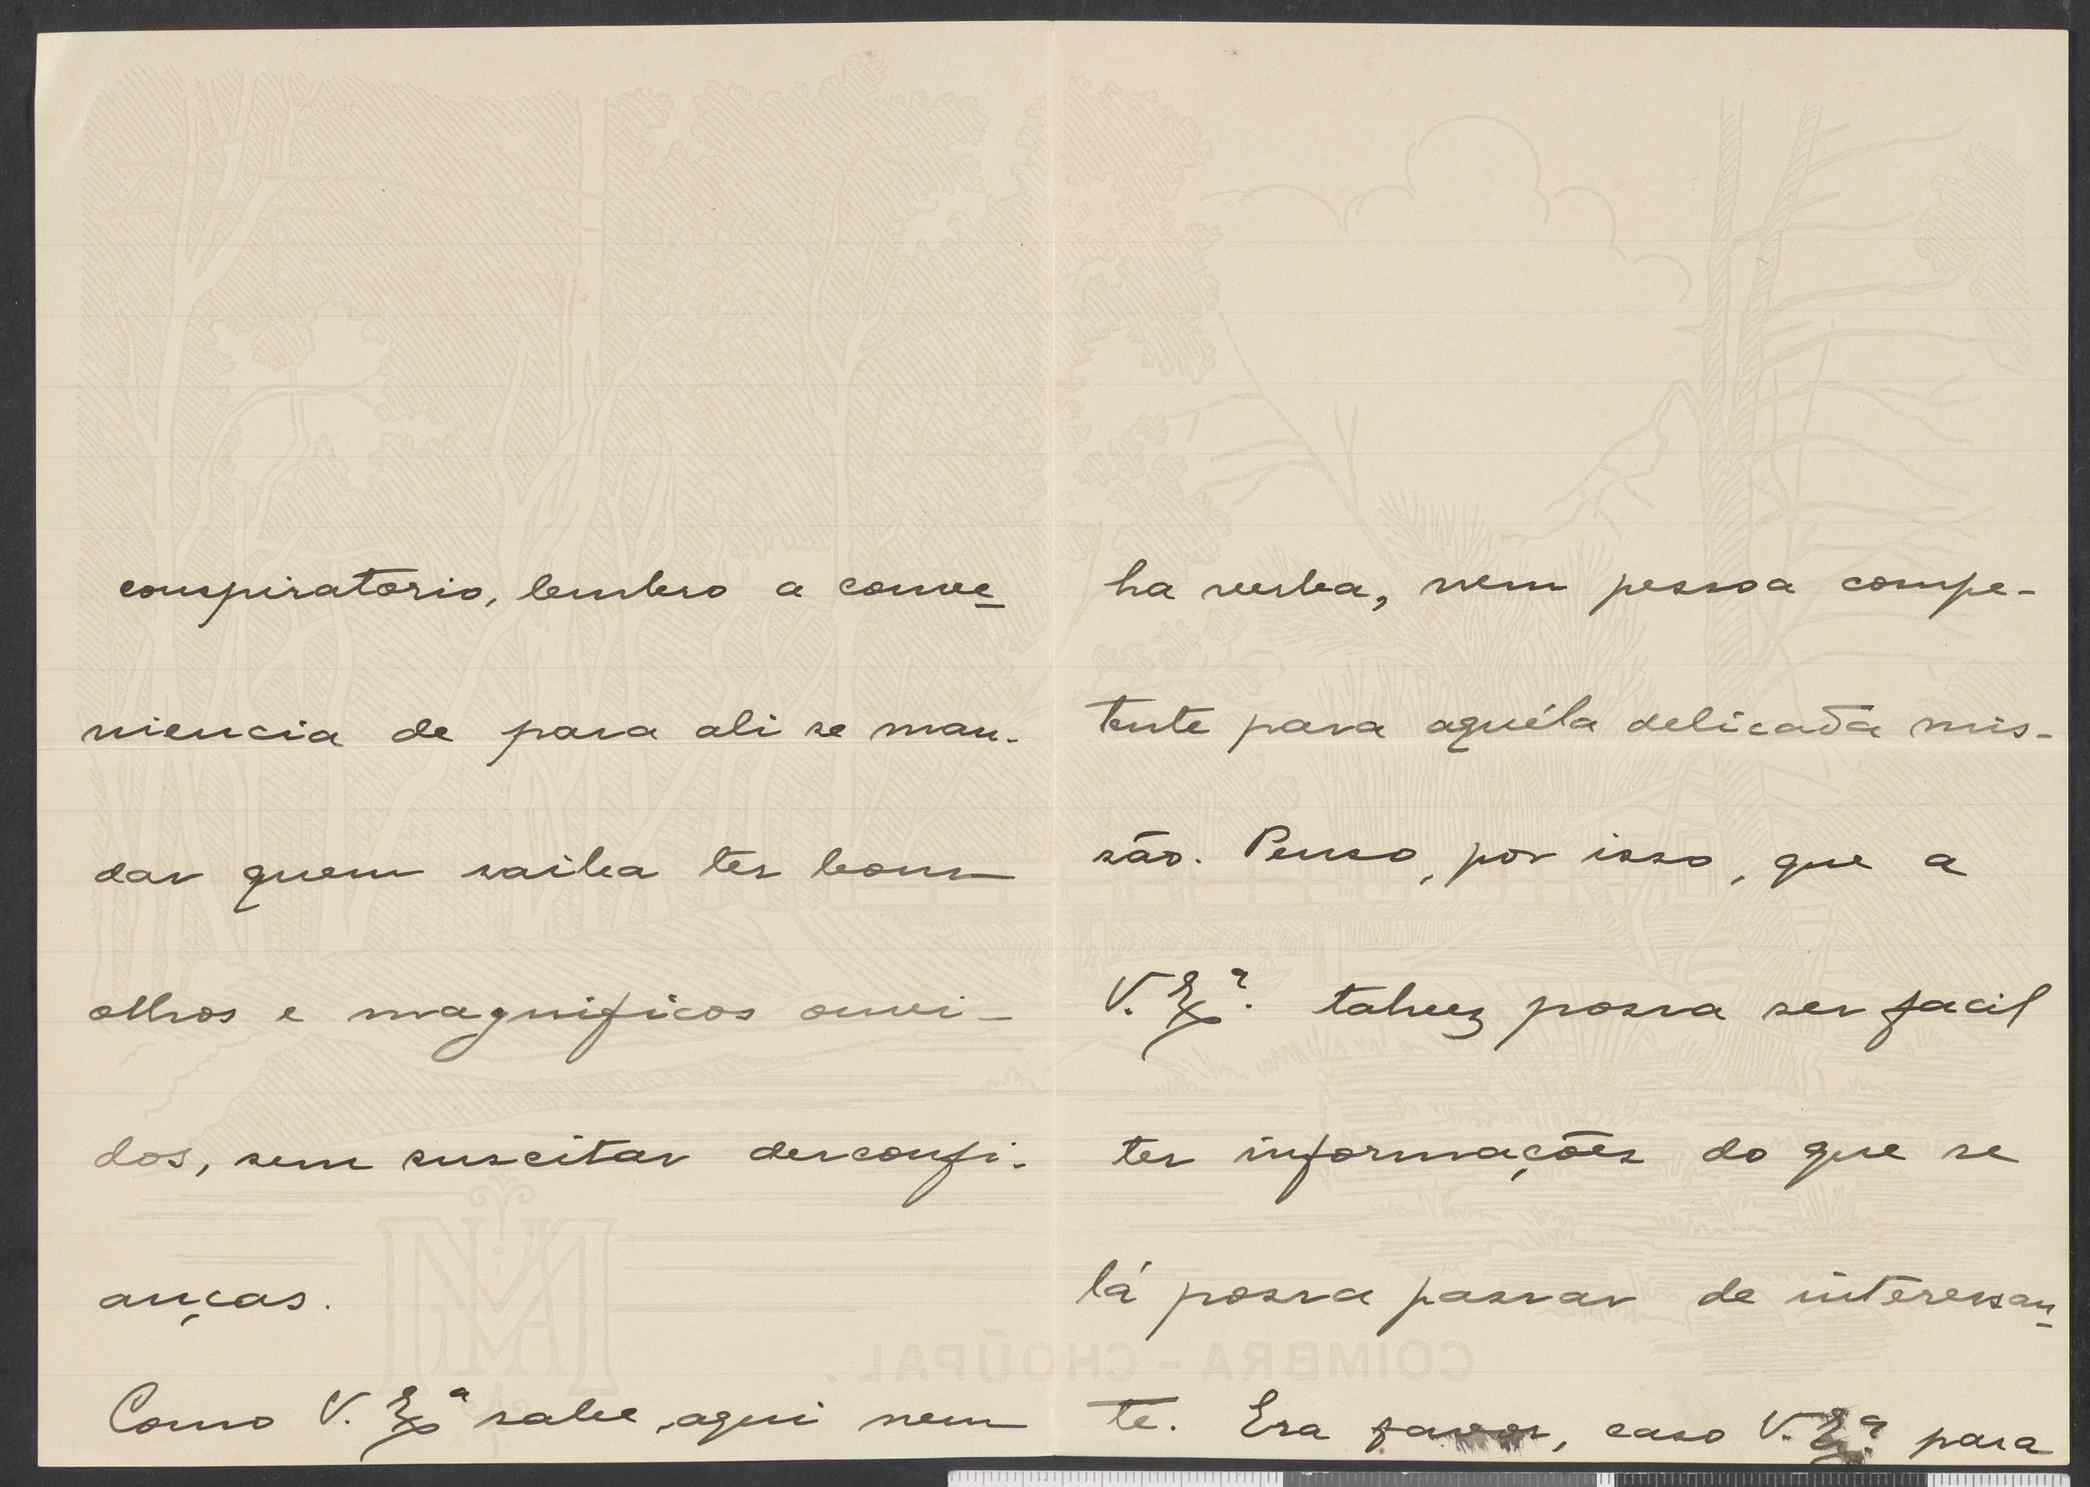 conspiratorio, lembro a conve-
niencia de para ali se man-
dar quem saiba ter bons
olhos e magnificos ouvi-
dos, sem suscitar desconfi-
anças.
Como V. Exª sabe, aqui nem
ha verba, nem pessoa compe-
tente para aquéla delicada mis-
são. Penso, por isso, que a
V. Exª. talvez possa ser facil
ter informações do que se
lá possa passar de interessan-
te. Era favor, caso V. Exª para
COIMBRA - CHOUPAL.